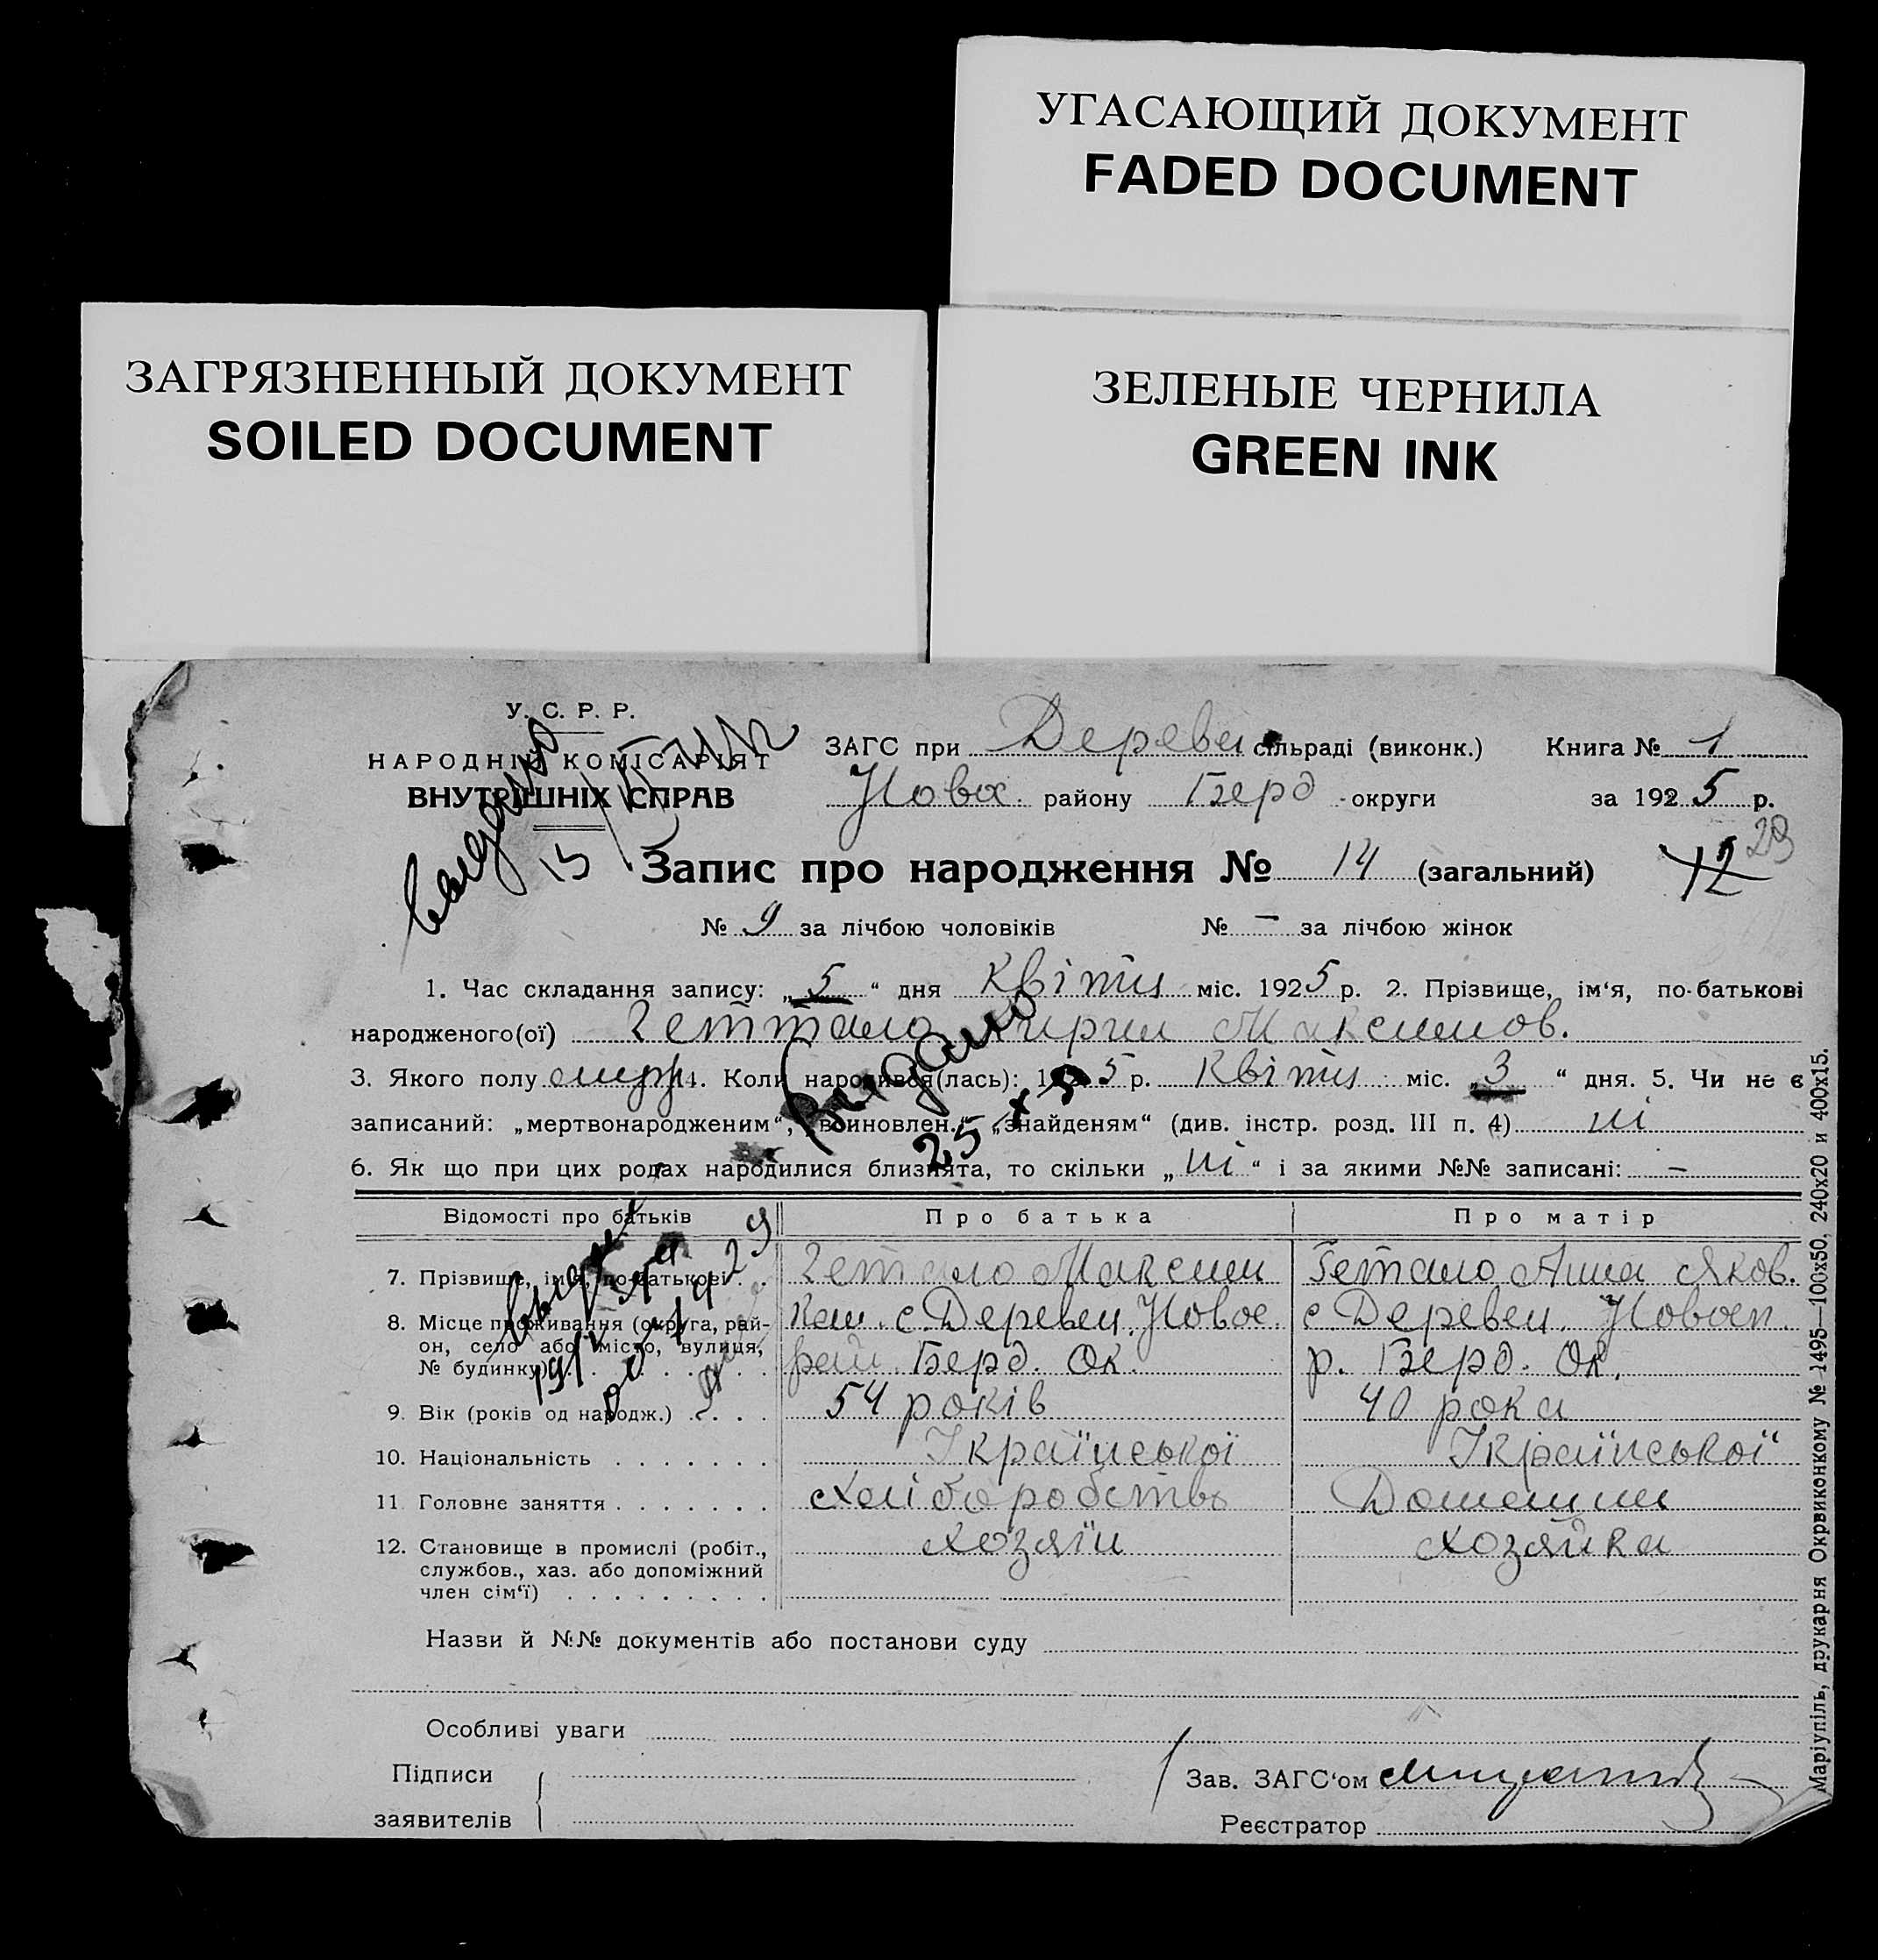 УГАСАЮЩИЙ ДОКУМЕНТ
FADED DOCUMENT
ЗАГРЯЗНЕННЫЙ ДОКУМЕНТ
SOILED DOCUMENT
ЗЕЛЕНЫЕ ЧЕРНИЛА
GREEN INK
У. С. Р. Р.
НАРОДНІЙ КОМІСАРІЯТ
ВНУТРІШНІХ СПРАВ
ЗАГС при Деревец сільраді (виконк.) Книга № 1
району Берд округи за 1925 р.
Запис про народження № 14 (загальний) 12 23
№ 9 за лічбою чоловіків № — за лічбою жінок
1. Час складання запису: „5“ дня Квітня міс. 1925 р. 2. Прізвище, ім‘я, по-батькові
народженого(ої) Геттало Кирил Максимов.
3. Якого полу 4. Коли народився(лась): 1925 р. Квітня міс. „3“ дня. 5. Чи не є
записаний: „мертвонародженим“, „знайденям“ (див. інстр. розд. III п. 4) ні
6. Як що при цих родах народилися близнята, то скільки „ні“ і за якими №№ записані: —
Видано
25 X
Відомості про батьків Про батька Про матір
7. Прізвище, ім‘я, по-батькові Гетало Максим Гетало Анна Яков.
8. Місце проживання (округа, рай- с Деревец. Новос. с Деревец. Новосп.
он, село або місто, вулиця, рай. Берд. Ок. р. Берд. Ок.
№ будинку)
9. Вік (років од народж.) 54 років 40 рока
10. Національність Української Української
11. Головне заняття Хліборобство Домашня
12. Становище в промислі (робіт., хозяїн хозяйка
службов., хаз. або допоміжний
член сім‘ї)
Назви й №№ документів або постанови суду
Особливі уваги
Підписи
заявителів
Зав. ЗАГС‘ом
Реєстратор
Маріупіль, друкарня Окрвиконкому № 1495—100х50, 240х20 и 400х15.